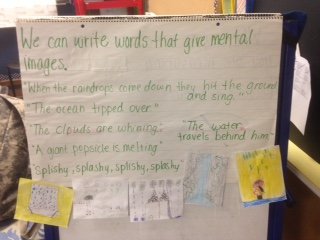 We can write words that give mental
images.
"When the raindrops come down they hit the ground
and sing."
"The ocean tipped over"
"The clouds are whining."
"The water
travels behind him"
"A giant popsicle is melting"
"Splishy, splashy, splishy, splashy"